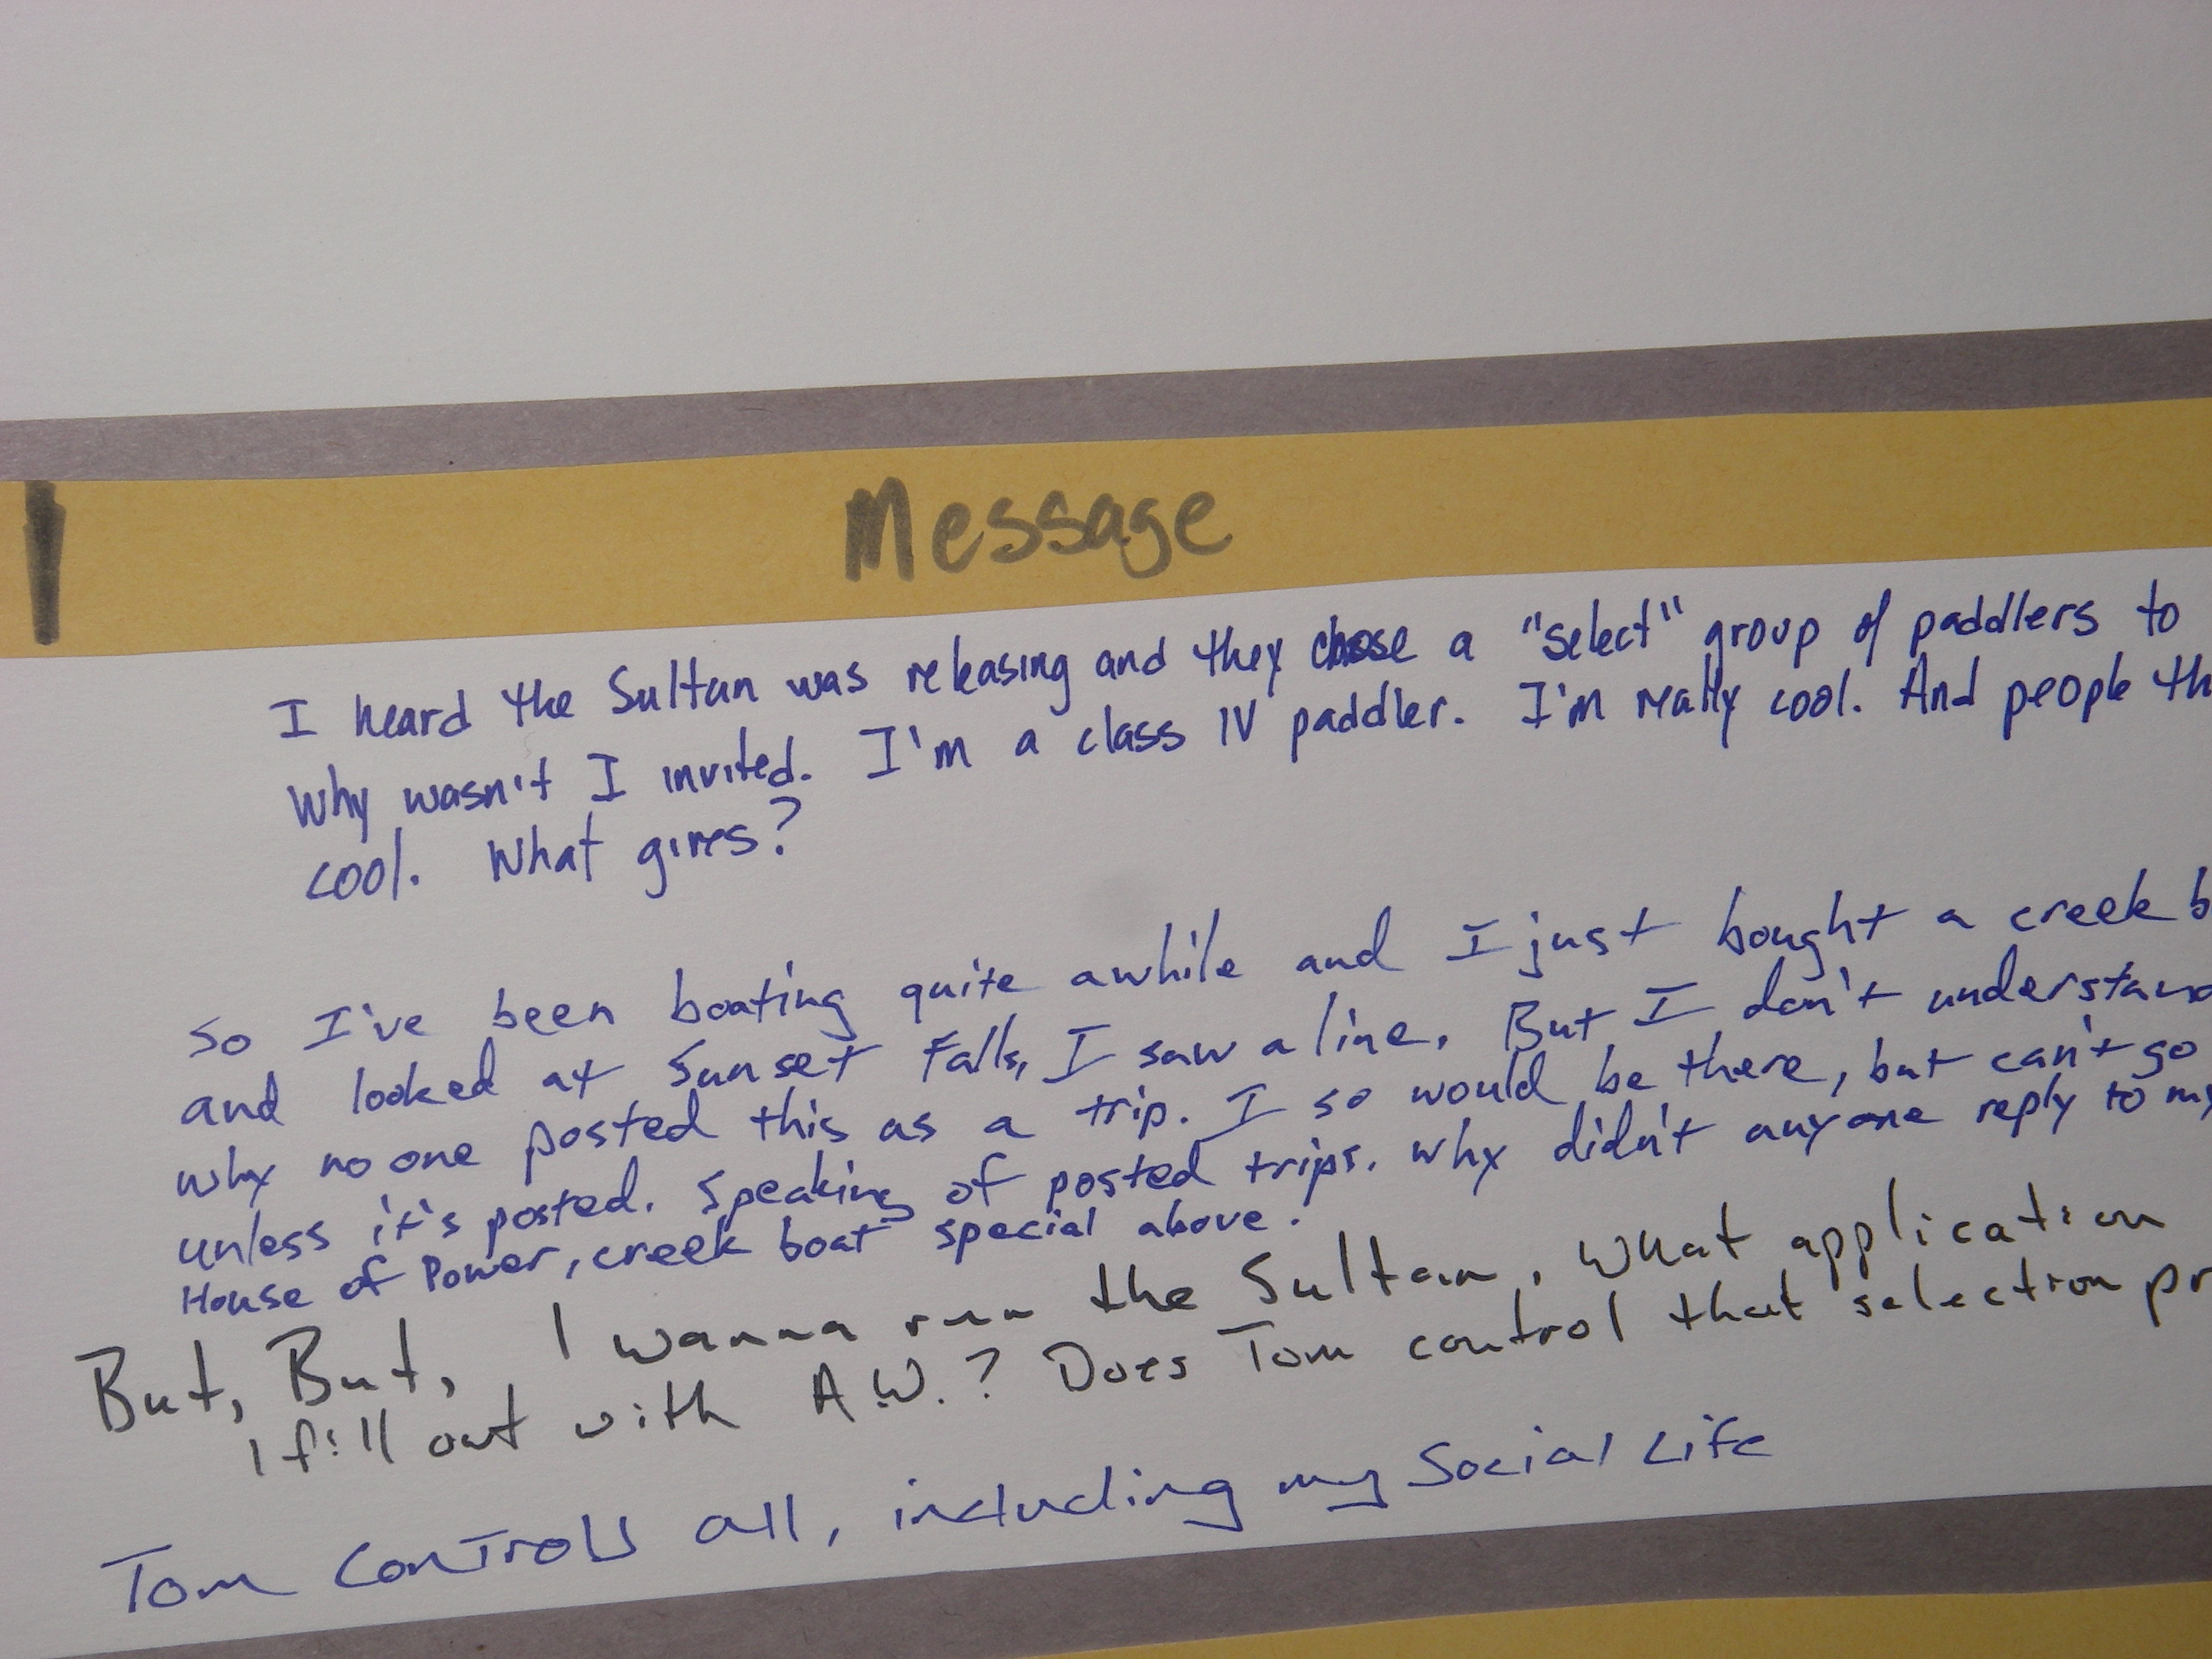 Message
I heard the Sultan was releasing and they chose a "select" group of paddlers to
Why wasn't I invited. I'm a class IV paddler. I'm really cool. And people th
cool. What gives?
So I've been boating quite awhile and I just bought a creek b
and looked at Sunset Falls, I saw a line. But I don't understand
why no one posted this as a trip. I so would be there, but can't go
unless it's posted. Speaking of posted trips. Why didn't anyone reply to my
House of Power, creek boat special above.
But, But, I wanna run the Sultan. What application
I fill out with A.W.? Does Tom control that selection pr
Tom controls all, including my Social Life